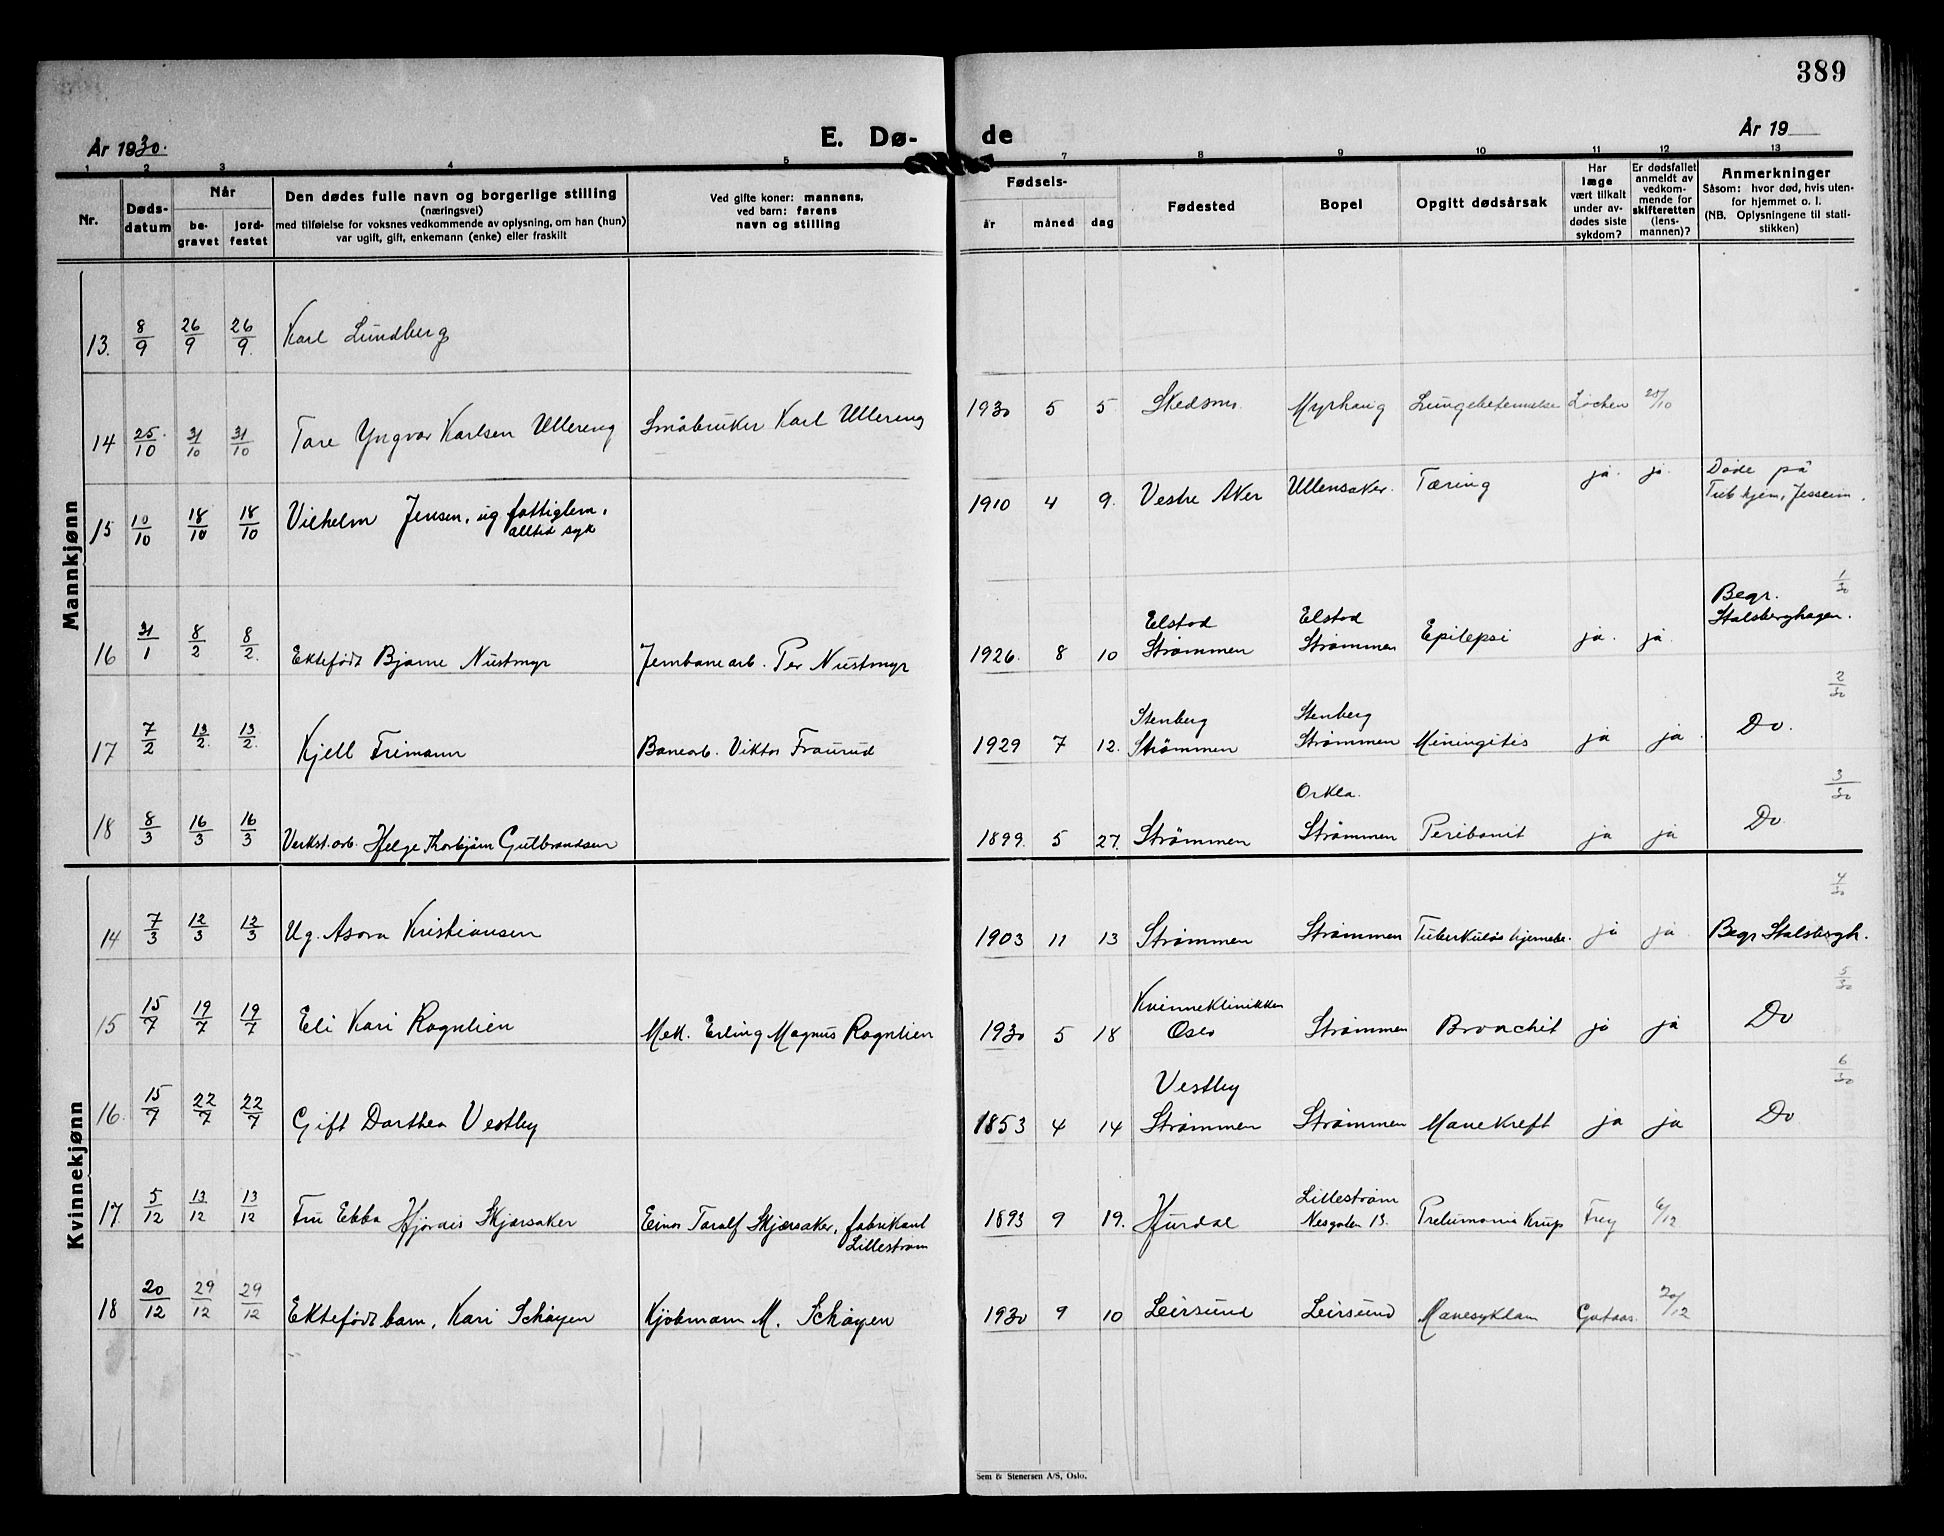 389
År 1930.
E. Dø-
de
År 19
1 2 3 4 5 7 8 9 10 11 12 13
Nr.
Døds-
datum
Når
be-
gravet
jord-
festet
Den dødes fulle navn og borgerlige stilling
(næringsvei)
med tilføielse for voksnes vedkommende av oplysning, om han (hun)
var ugift, gift, enkemann (enke) eller fraskilt
Ved gifte koner: mannens,
ved barn: farens
navn og stilling
Fødsels-
år måned dag
Fødested
Bopel
Opgitt dødsårsak
Har
læge
vært tilkalt
under av-
dødes siste
sykdom?
Er dødsfallet
anmeldt av
vedkom-
mende for
skifteretten
(lens-
mannen)?
Anmerkninger
Såsom: hvor død, hvis uten-
for hjemmet o. l.
(NB. Oplysningene til stati-
stikken)
Mannkjønn
13. 8/9 26/9 26/9. Karl Lundberg
14 25/10 31/10 31/10 Tore Yngvar Karlsen Ullereng Småbruker Karl Ullereng 1930 5 5. Skedsmo Myrhaug Lungebetennelse Lochen 25/10
15 10/10 18/10 18/10 Vilhelm Jensen, ug fattiglem, 1910 4 9. Vestre Aker Ullensaker. Tæring ja. ja. Døde på
alltid syk
Tub hjem, Jessheim.
1/30
Begr.
Elstad Elstad Stalsberghagen.
16 31/1 8/2 8/2. Ektefødt Bjarne Nustmyr Jernbanearb. Per Nustmyr 1926. 8 10 Strømmen Strømmen Epilepsi ja. ja.
2/30
Stenberg Stenberg
17 7/2 13/2. 13/2. Kjell Frimann Banearb. Viktor Fraurud 1929 7 12. Strømmen Strømmen Miningitis ja ja Do.
3/30
Orkla.
18 8/3 16/3 16/3 Verkst.arb. Helge Thorbjørn Gulbrandsen 1899. 5 27. Strømmen Strømmen Peritonit ja ja Do
Kvinnekjønn
4/30
14 7/3 12/3 12/3 Ug. Asora Kristiansen 1903 11 13 Strømmen Strømmen Tuberkuløs hjernebe. ja ja Begr Stalsbergh.
5/30
Kvinneklinikken
15 15/7 19/7 19/7 Eli Kari Rognlien Mek. Erling Magnus Rognlien 1930 5 18 Oslo Strømmen Bronchit ja ja Do
6/30
Vestby
16. 15/7 22/7 22/7 Gift Dorthea Vestby 1853 4 14 Strømmen Strømmen Mavekreft ja ja Do
Lillestrøm
17. 5/12 13/12 13/12 Fru Ebba Hjørdis Skjærsaker Einar Taralf Skjærsaker, fabrikant 1893 9 19. Hurdal Nesgaten 13. Krup Frey 6/12
Lillestrøm
18 20/12 29/12 29/12 Ektefødt barn, Kari Schøyen Kjøbmann M. Schøyen 1930 9 10 Leirsund Leirsund Mavesykdom 20/12
Sem & Stenersen A/S, Oslo.